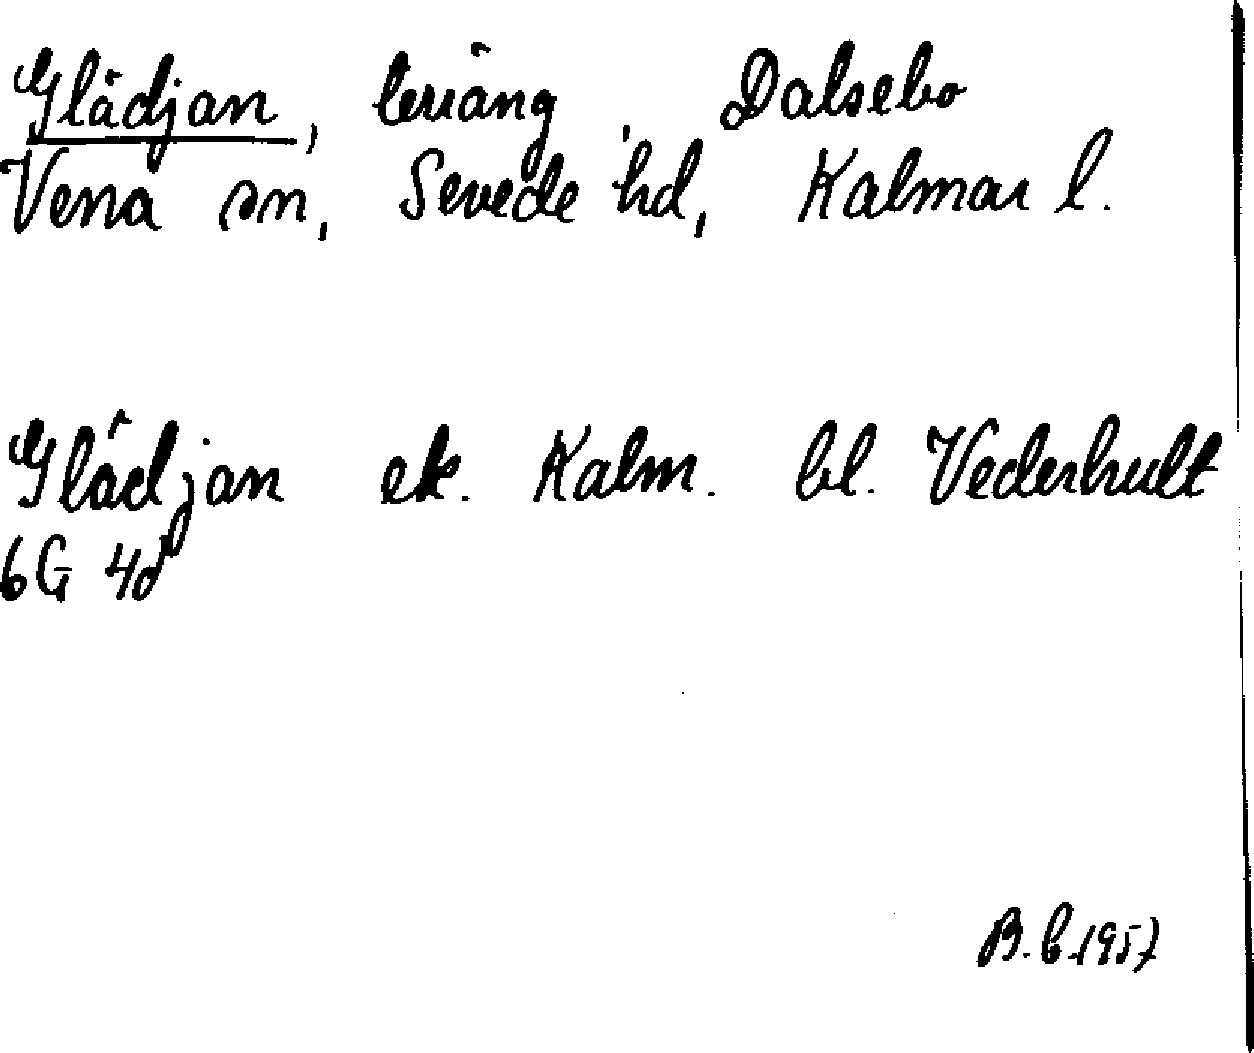 Glädjan, teräng, Dalsebo
Vena sn, Sevede hd, Kalmar l.
Glädjan ek. Kalm. bl. Vederhult
6G 4d
B.b.1957